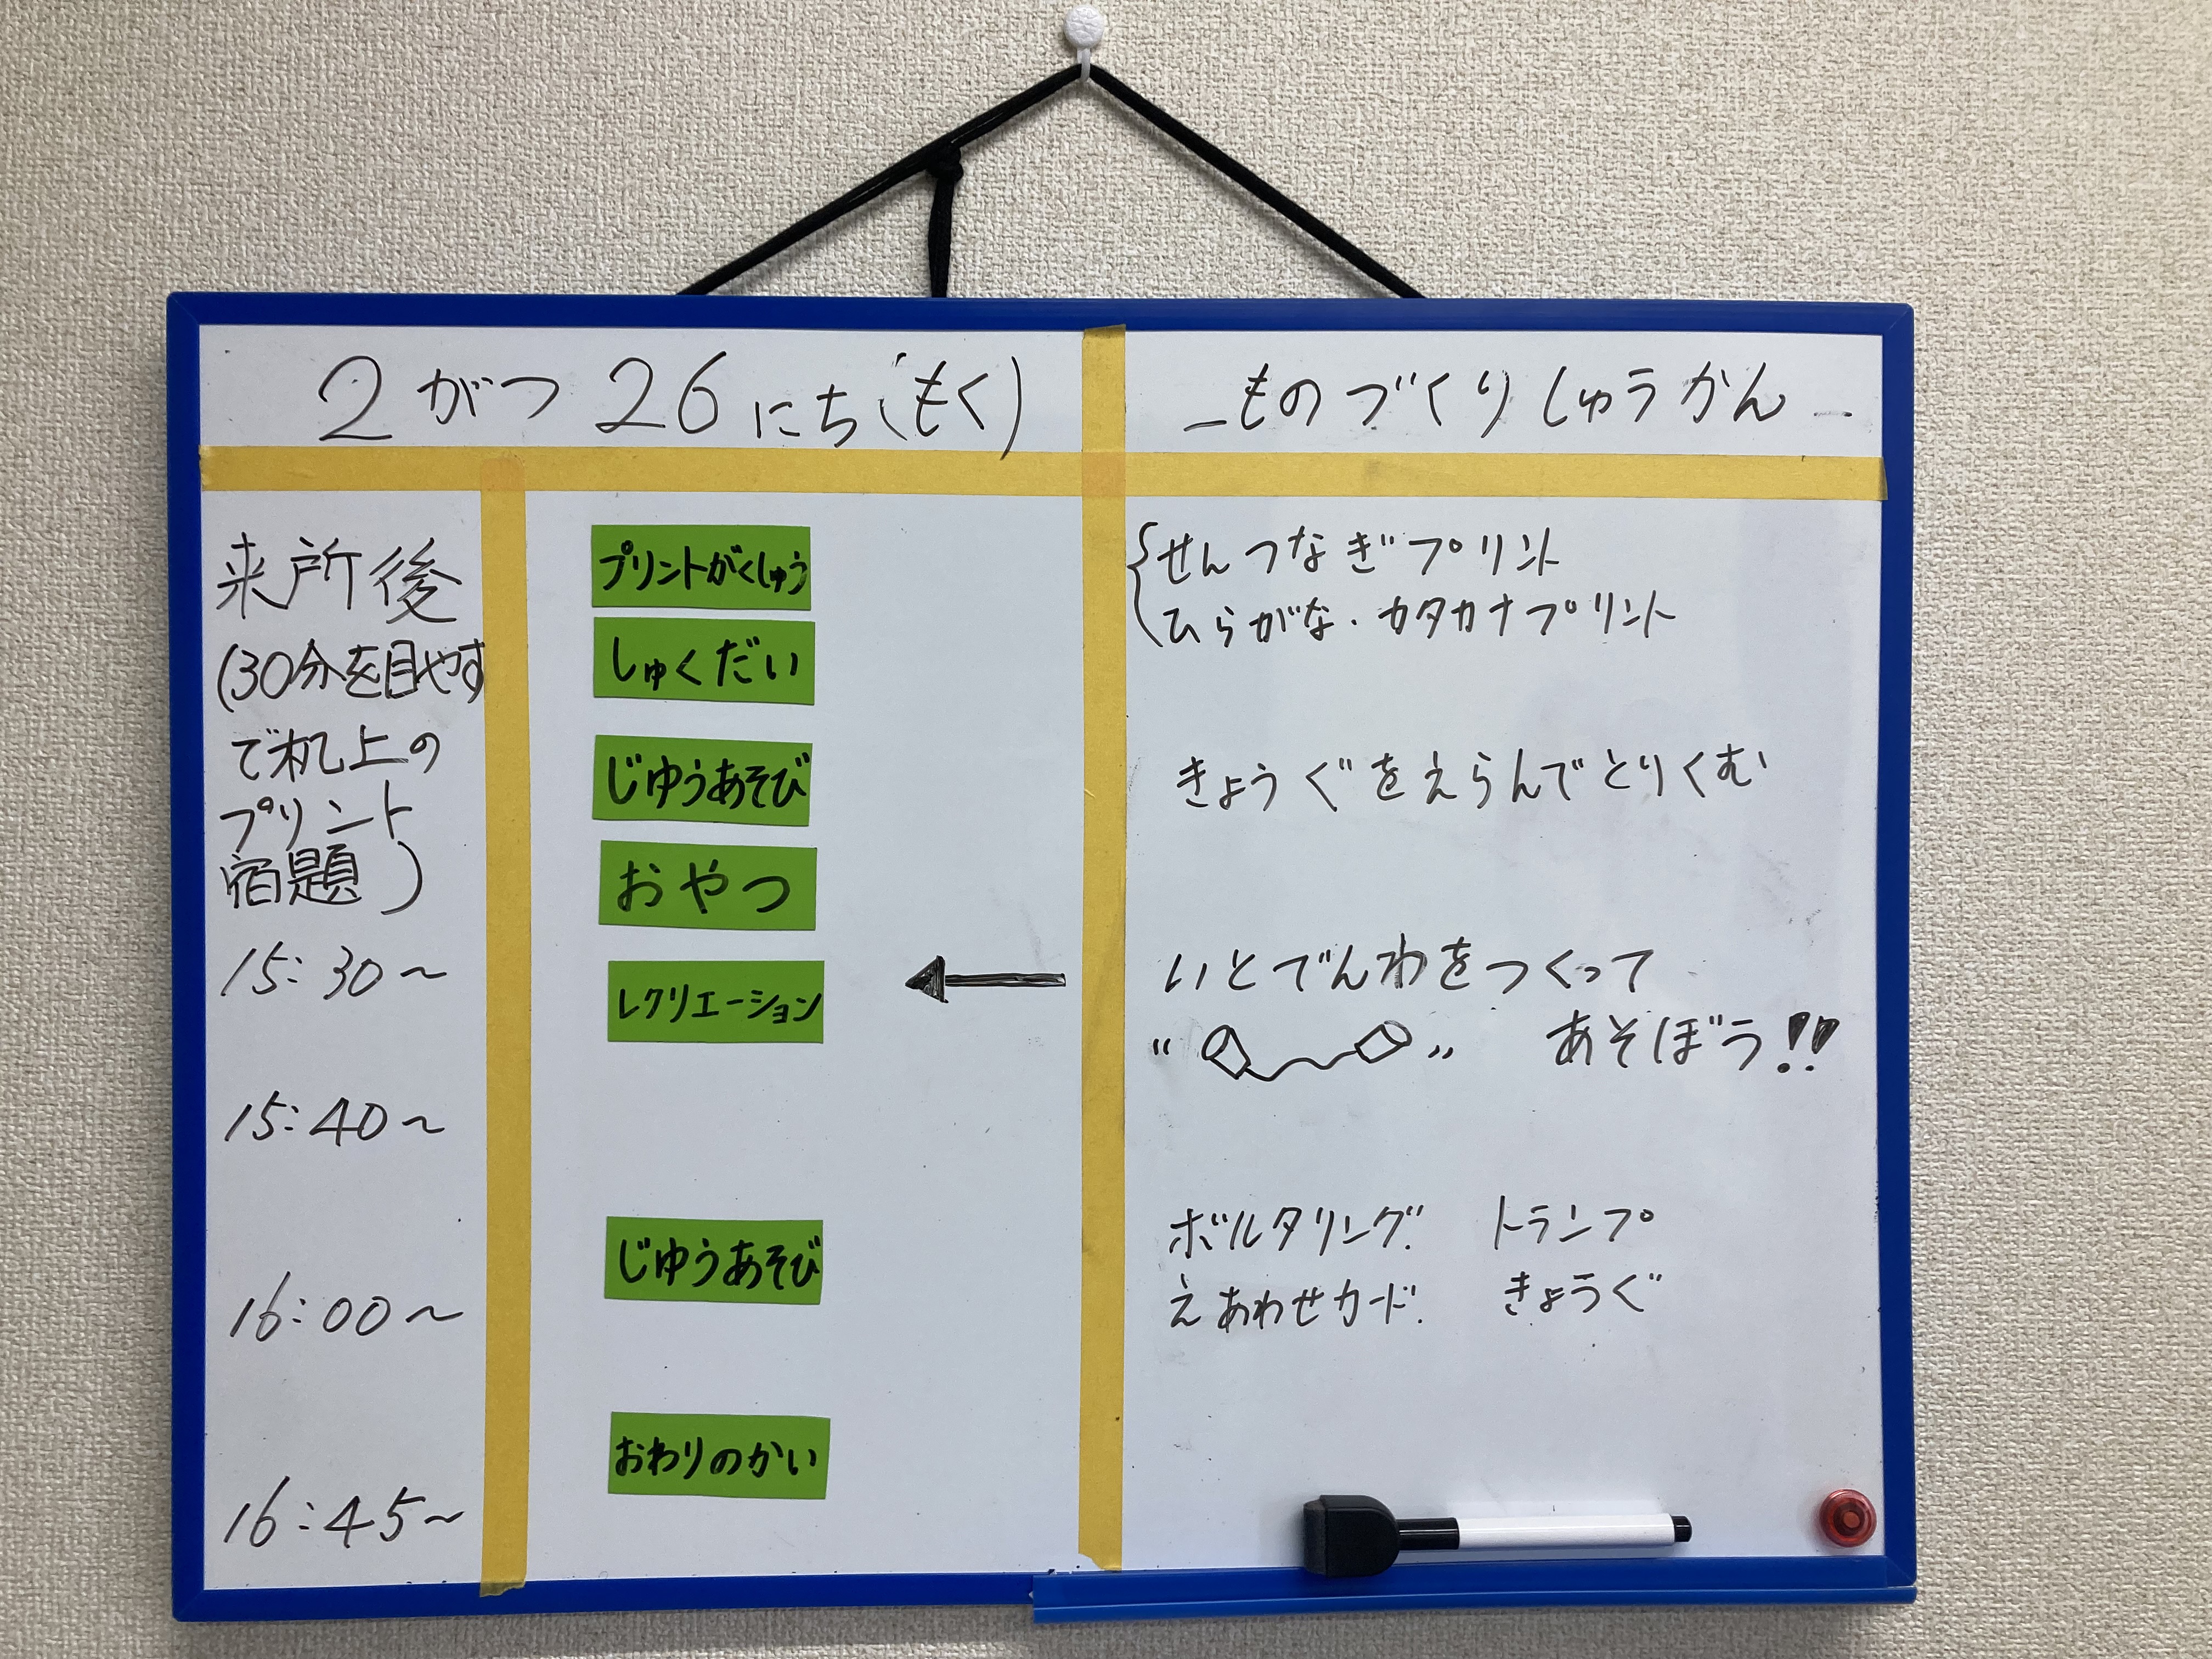 2がつ26にち(もく)
-ものづくりしゅうかん-
来所後
(30分を目やす
で机上の
プリント
宿題)
15:30~
15:40~
16:00~
16:45~
プリントがくしゅう
しゅくだい
じゆうあそび
おやつ
レクリエーション
じゆうあそび
おわりのかい
せんつなぎプリント
ひらがな・カタカナプリント
きょうぐをえらんでとりくむ
いとでんわをつくって
あそぼう!!
ボルタリング トランプ
えあわせカード きょうぐ